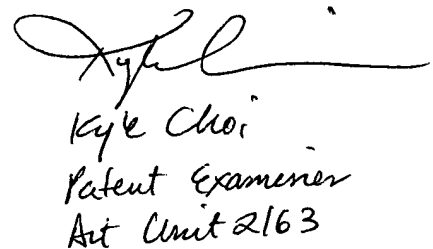 Kyle Choi
Patent Examiner
Art Unit 2163